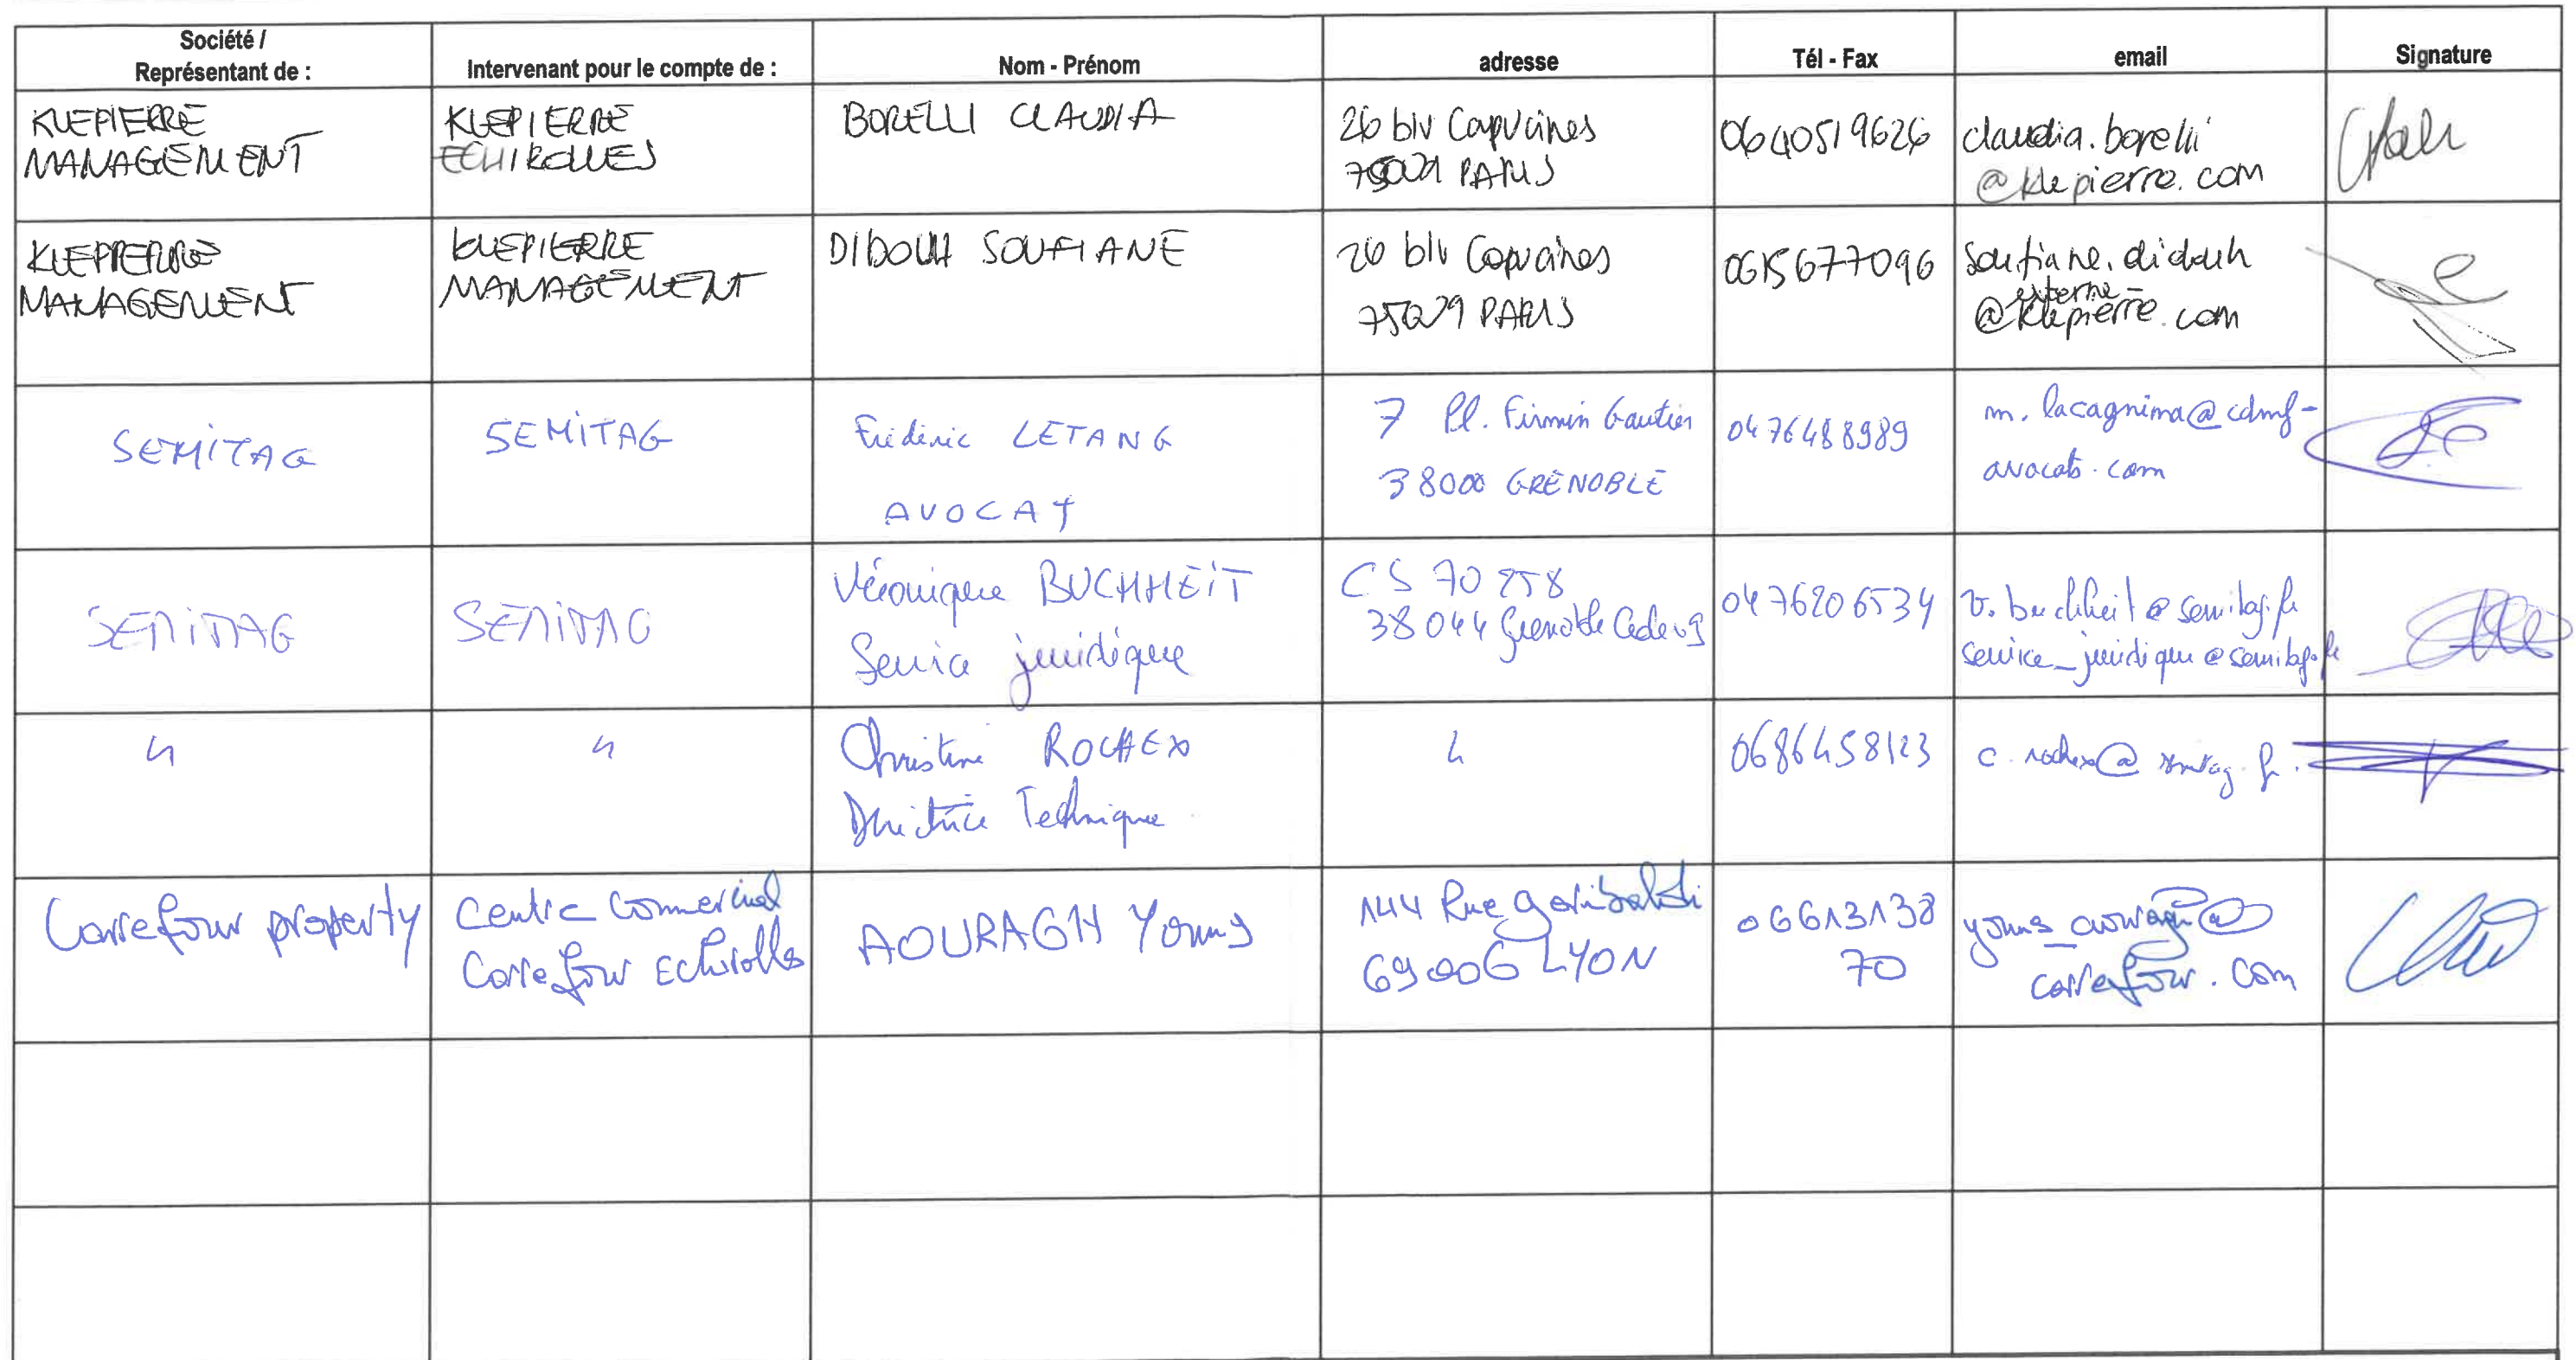 Société /
Représentant de :
Intervenant pour le compte de :
Nom - Prénom
adresse
Tél - Fax
email
Signature
KLEPIERRE
MANAGEMENT
KLEPIERRE
ECHIROLLES
BORELLI CLAUDIA
26 blv Capucines
PARIS
0640519626
claudia.borelli
@klepierre.com
KLEPIERRE
MANAGEMENT
KLEPIERRE
MANAGEMENT
DIDOUH SOUFIANE
26 blv Capucines
75009 PARIS
0615677096
soufiane.didouh
externe-
@klepierre.com
SEMITAG
SEMITAG
Frédéric LETANG
AVOCAT
7 Pl. Firmin Gautier
38000 GRENOBLE
0476488989
m.lacagnima@cdmf-
avocats.com
SEMITAG
SEMITAG
Véronique BUCHHEIT
Service juridique
CS 70258
38044 Grenoble Cedex 9
0476206534
v.buchheit@semitag.fr
service_juridique@semitag.fr
"
"
Christine ROCHEX
Directrice Technique
"
0686458123
c.rochex@semitag.fr
Carrefour property
Centre Commercial
Carrefour Echirolles
AOURAGH Younes
144 Rue garibaldi
69006 LYON
06613138
70
younes_aouragh@
carrefour.com